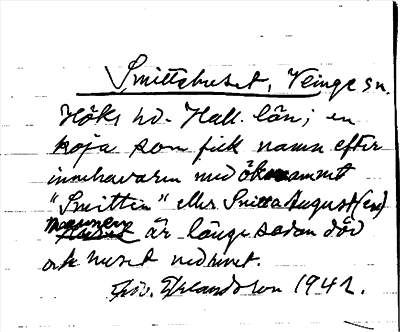 Smittahuset, Veinge sn.
Höks hd. Hall. län; en
koja som fick namn efter
innehavaren med öknamnet
"Smitten" eller Smitta August (en)
Mannen är länge sedan död
och huset nedrivet.
Erlandsson 1942.